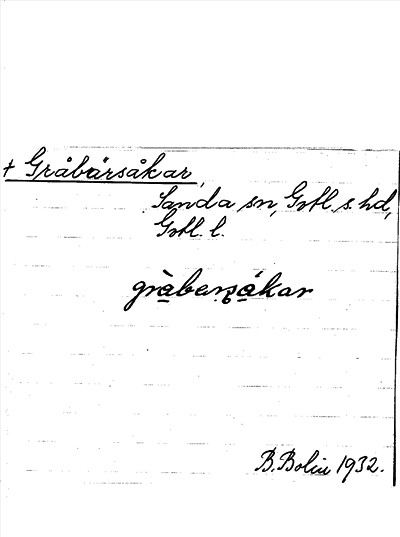 + Gråbärsåkar,
Sanda sn, Gotl. s. hd,
Gotl. l.
gràbarsákar
B. Bolin 1932.